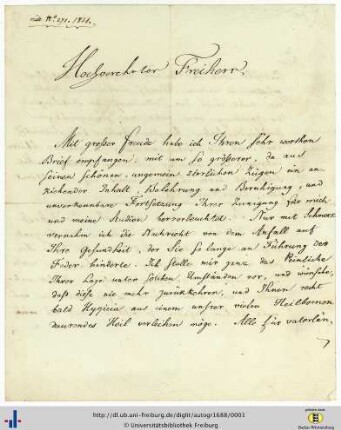 Hochverehrter Freiherr,
Mit großer Freude habe ich Ihren sehr werthen
Brief empfangen, mit um so größerer, da aus
seinen schönen, ungemein zierlichen Zügen, ein an
ziehender Inhalt, Belehrung und Beruhigung, und
unverkennbare Fortsetzung Ihrer Zuneigung für mich
und meine Studien hervorleuchtet. Nur mit Schmerz
vernahm ich die Nachricht von dem Anfall auf
Ihre Gesundheit, der Sie so lange an Führung der
Feder hinderte. Ich stelle mir ganz das Peinliche
Ihrer Lage unter solchen Umständen vor, und wünsche,
daß diese nie mehr zurückkehren, und Ihnen recht
bald Hygieia aus einem unsrer vielen Heilbronnen
daurendes Heil verleihen möge. Alle für vaterlän,
http://dl.ub.uni-freiburg.de/diglit/autogr1688/0001
© Universitätsbibliothek Freiburg